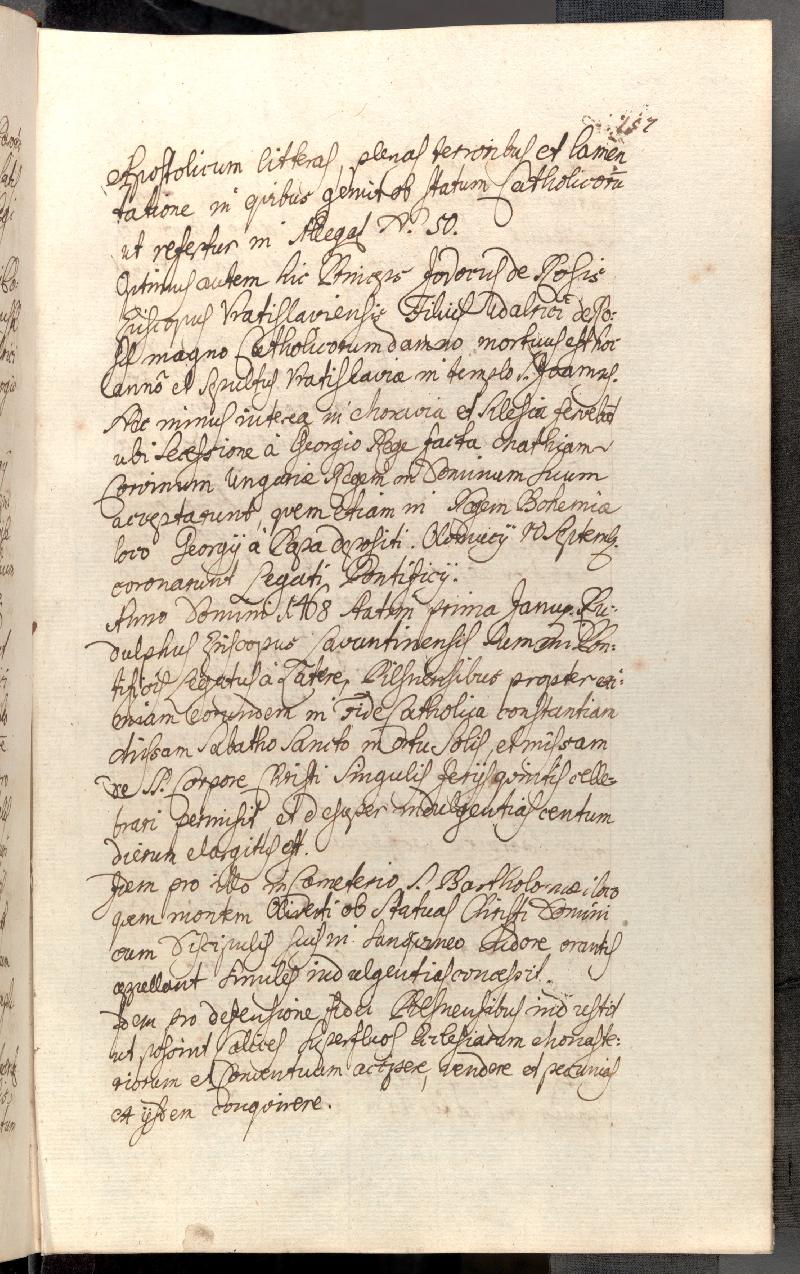 157
Apostolicum litteras, plenas terroribus et lamen
tatione in quibus gemit ob statum Catholicorū
ut refertur in Allegat N.º 50.
Optimus autem hic Princeps Jodocus de Rosis
Episcopus Vratislaviensis Filius Udalrici de Ro:
sis magno Catholicorum damno mortuus est hoc
anno et sepultus Vratislaviæ in templo S. Joannis.
Nec minus interea in Moravia et Silesia fervebat
ubi secessione à Georgio Rege facta Mathiam
Corvinum Ungariæ Regem in Dominum suum
acceptarunt, quem etiam in Regem Bohemiæ
loco Georgij à Papa depositi. Olomucij Septemb.
coronarunt Legati Pontificij.
Anno Domini 1468 statim prima Januar. Ru:
dulphus Episcopus Lavantinensis Summi Pon:
tificis Legatus à Latere, Pilsnensibus propter exi:
miam eorundem in Fide Catholica constantiam
Missam Sabatho Sancto in ortu Solis, et missam
de SS. Corpore Christi singulis ferijs quintis cele:
brari permisit et desuper indulgentias centum
dierum elargitus est.
Item pro illo in Cæmeterio S. Bartholomæi loco
quem montem Oliveti ob Statuas Christi Domini
cum Discipulis suis in sanguineo sudore orantis
appellant similes indulgentias concessit.
Idem pro defensione fidei Pilsnensibus indulsit
ut possint calices superfluos Ecclesiarum Monaste:
riorum et Conventuum accipere, vendere et pecunias
ex ijsdem conquirere.